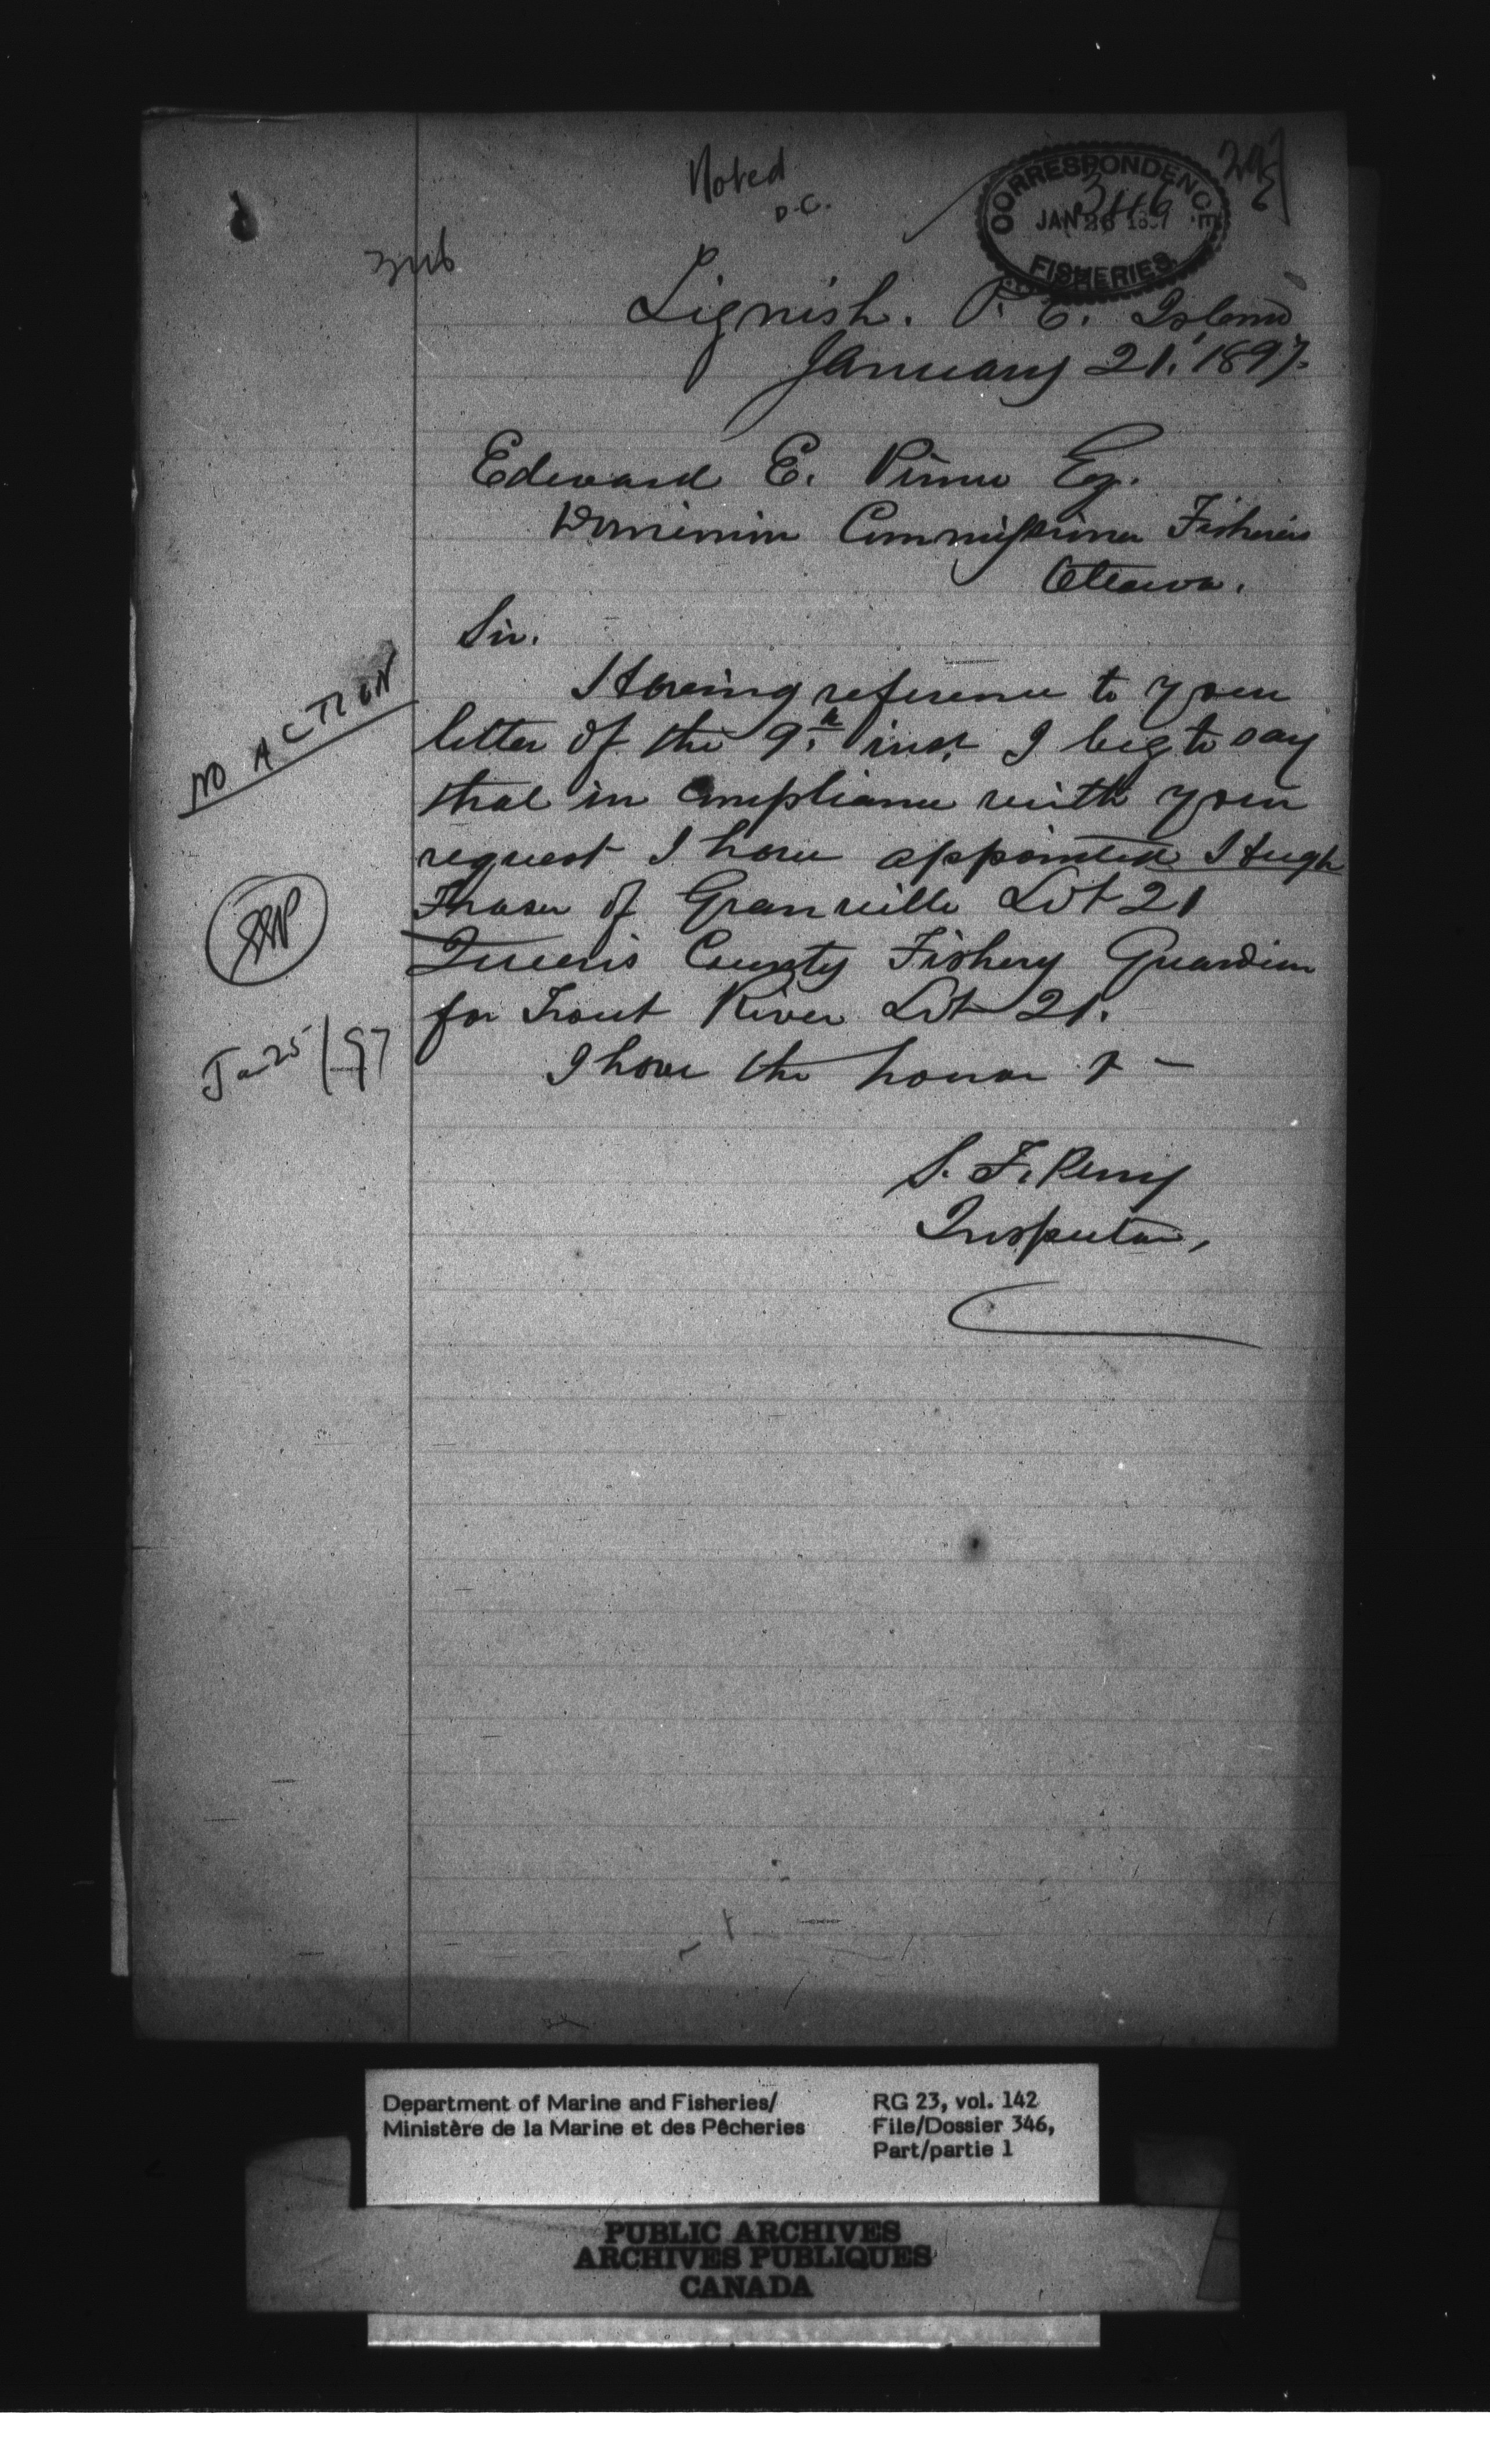 Noted
D.C.
CORRESPONDENCE
346
JAN 26 1897
FISHERIES
346
Tignish. P. E. Island
January 21, 1897.
Edward E. Prince Esq.
Dominion Commissioner Fisheries
Ottawa.
Sir.
Having reference to your
letter of the 9th inst. I beg to say
that in compliance with your
request I have appointed Hugh
Fraser of Granville Lot 21
Queens County Fishery Guardian
for Trout River Lot 21.
I have the honor &
S. F. Perry
Inspector,
NO ACTION
Ja 25/97
Department of Marine and Fisheries/
Ministère de la Marine et des Pêcheries
RG 23, vol. 142
File/Dossier 346,
Part/partie 1
PUBLIC ARCHIVES
ARCHIVES PUBLIQUES
CANADA